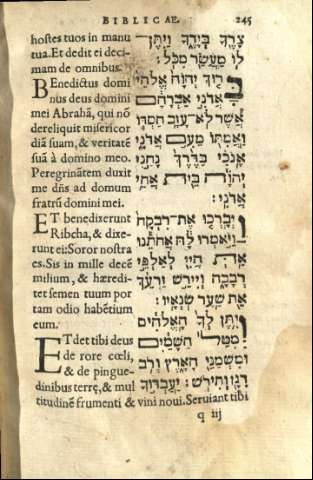 BIBLICAE. 245
hostes tuos in manu
tua. Et dedit ei deci
mam de omnibus.
Benedictus domi
nus deus domini
mei Abrahã, qui nõ
dereliquit misericor
diã suam, & veritatẽ
suã à domino meo.
Peregrinãtem duxit
me dñs ad domum
fratrũ domini mei.
ET benedixerunt
Ribcha, & dixe-
runt ei: Soror nostra
es. Sis in mille decẽ
milium, & hæredi-
tet semen tuum por
tam odio habẽtium
eum.
ET det tibi deus
de rore cœli,
& de pingue-
dinibus terrę, & mul
titudinẽ frumenti & vini noui. Seruiant tibi
צָרֶךָ בְּיָדֶךָ וַיִּתֶּן־
לוֹ מַעֲשֵׂר מִכֹּל׃
בָּרוּךְ יְהוָה אֱלֹהֵי
אֲדֹנִי אַבְרָהָם
אֲשֶׁר לֹא־עָזַב חַסְדּוֹ
וַאֲמִתּוֹ מֵעִם אֲדֹנִי
אָנֹכִי בַּדֶּרֶךְ נָחַנִי
יְהוָה בֵּית אֲחֵי
אֲדֹנִי׃
וַיְבָרֲכוּ אֶת־רִבְקָה
וַיֹּאמְרוּ לָהּ אֲחֹתֵנוּ
אַתְּ הֲיִי לְאַלְפֵי
רְבָבָה וְיִירַשׁ זַרְעֵךְ
אֵת שַׁעַר שֹׂנְאָיו׃
וְיִתֶּן לְךָ הָאֱלֹהִים
מִטַּל הַשָּׁמַיִם
וּמִשְׁמַנֵּי הָאָרֶץ וְרֹב
דָּגָן וְתִירֹשׁ׃ יַעַבְדוּךָ
q iij